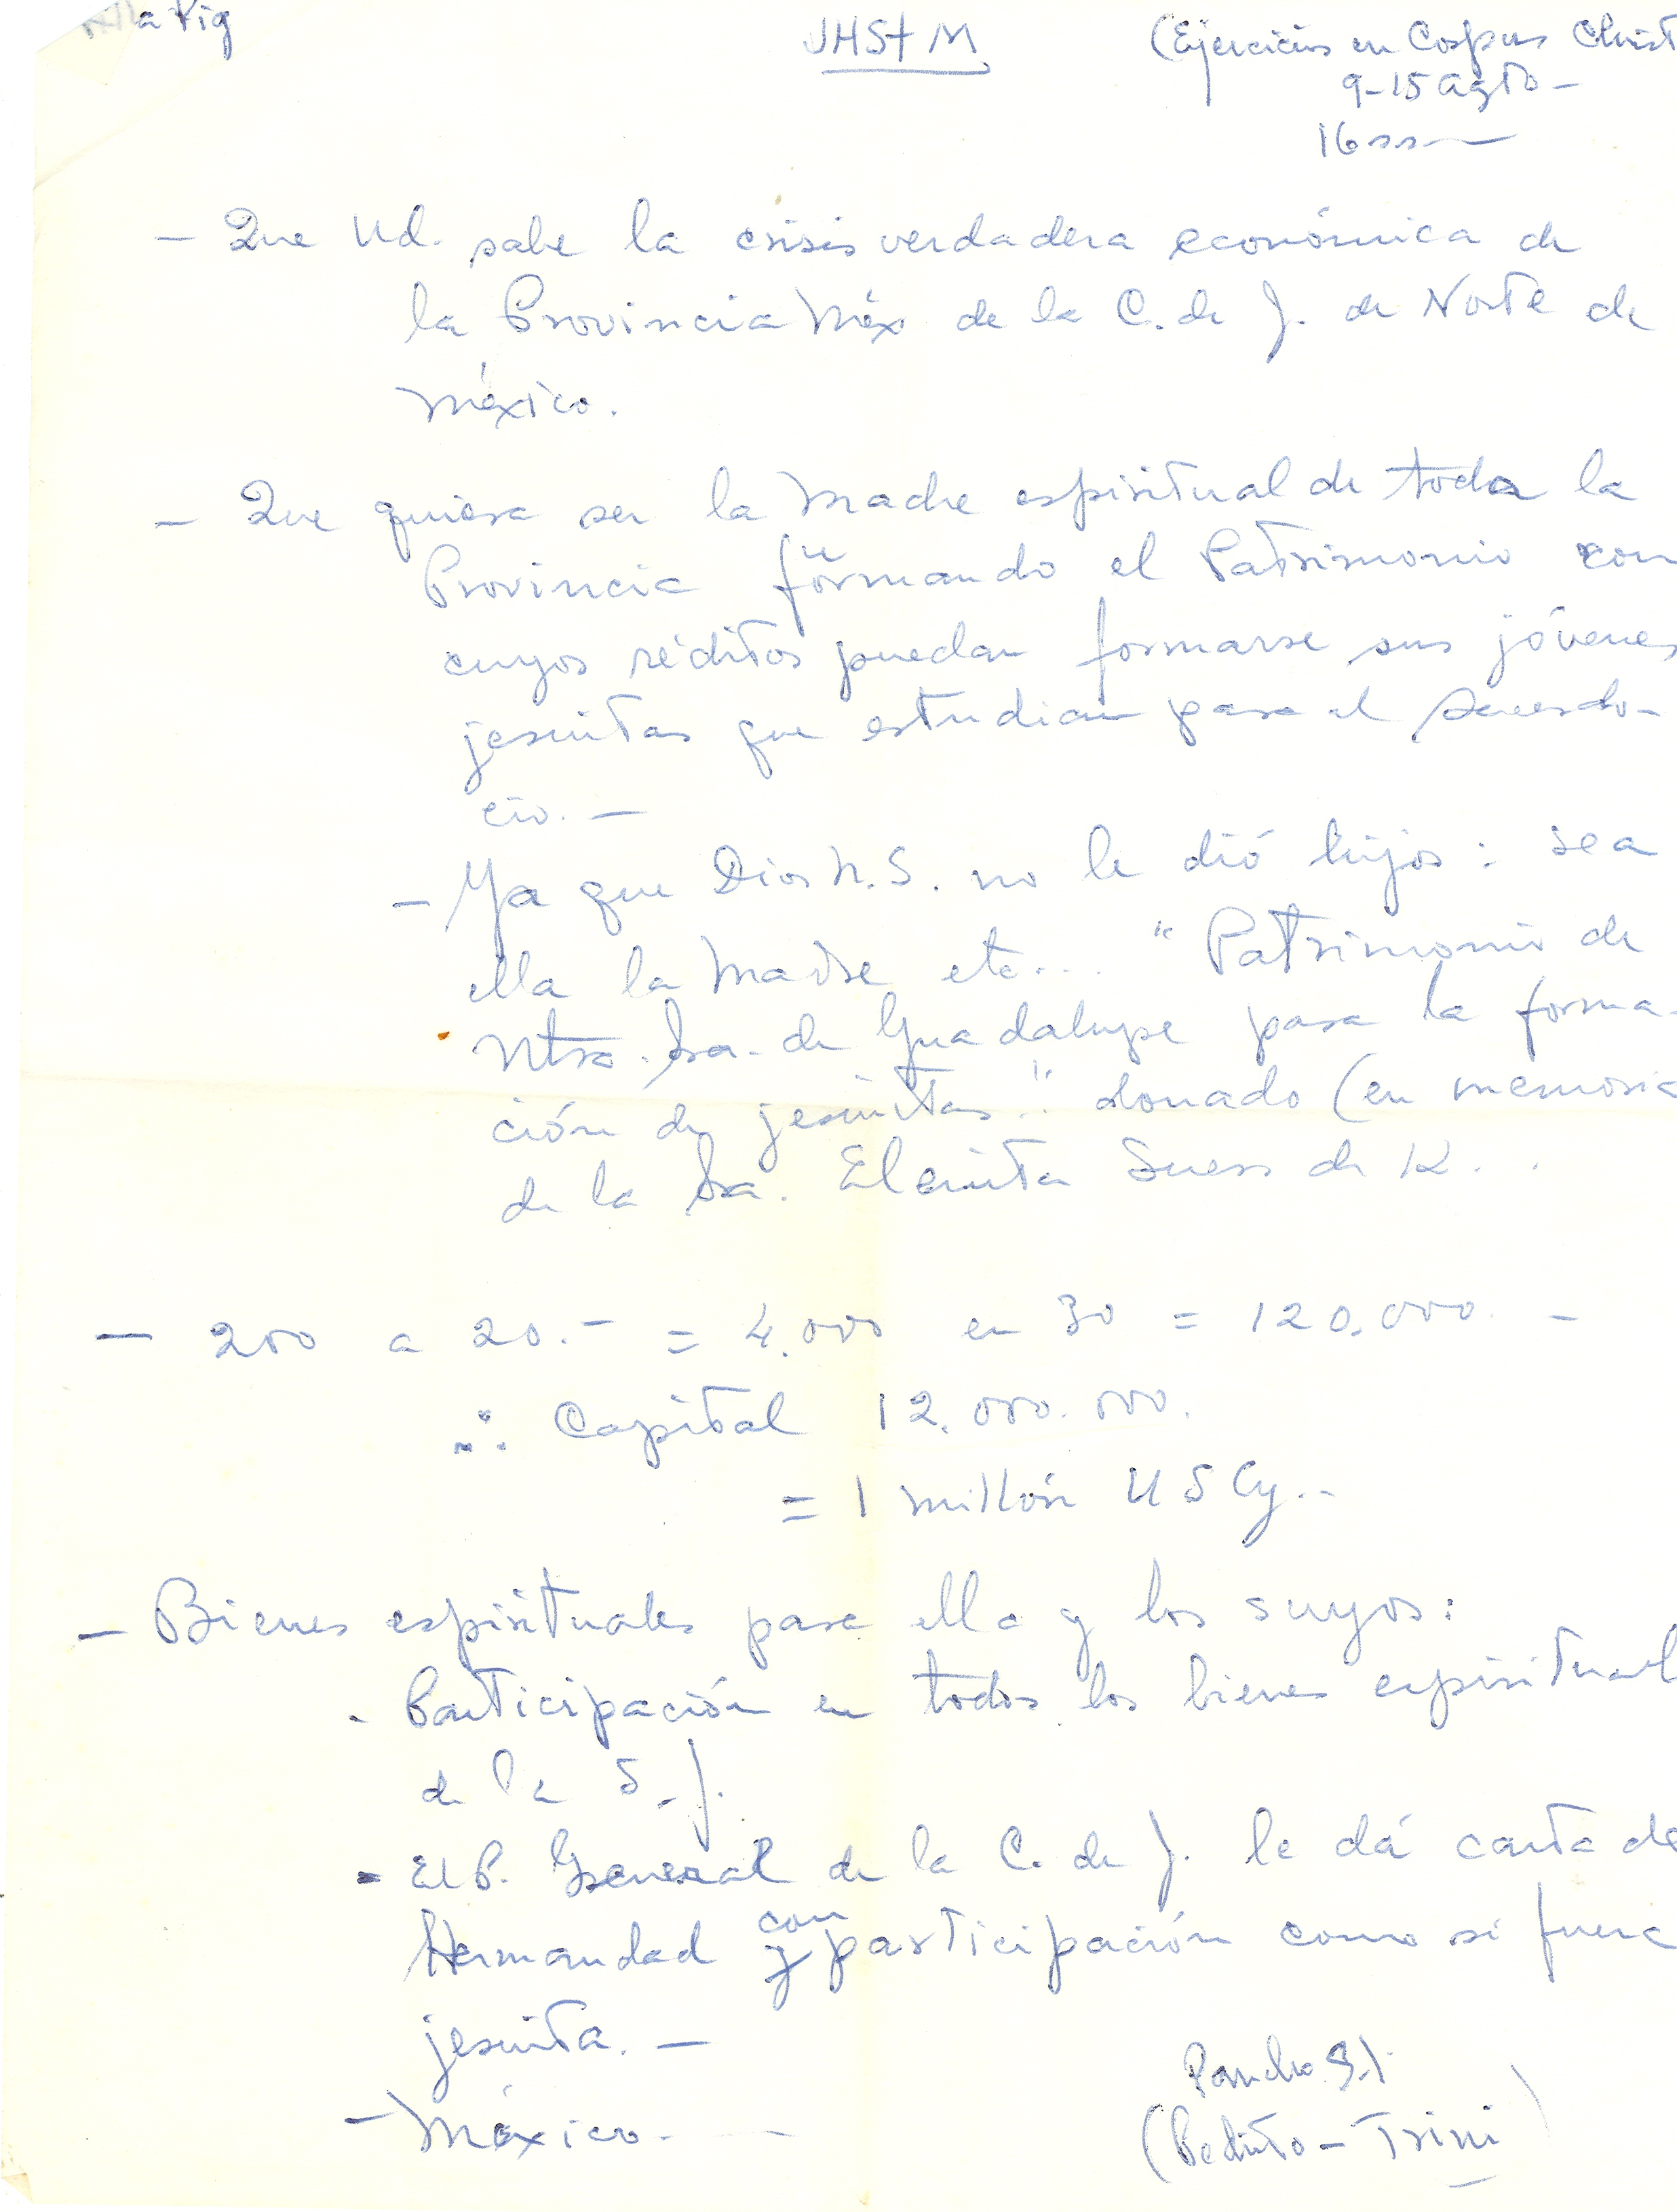 a Vig
JHS+M
(Ejercicios en Corpus Christ
9-15 Agto -
16 ss —
- Que Ud. sabe la crisis verdadera económica de
la Provincia Méx de la C. de J. de Norte de
México.
- Que quiera ser la Madre espiritual de toda la
Provincia formando el Patrimonio con
cuyos réditos puedan formarse sus jóvenes
jesuitas que estudian para el Sacerdo-
cio. —
- Ya que Dios N. S. no le dió hijos : sea
ella la Madre etc... "Patrimonio de
Ntra. Sra. de Guadalupe para la forma-
ción de jesuitas" donado (en memoria
de la Sra. Elenita Suess de K. .
— 200 a 20.- = 4.000 en 30 = 120.000. -
∴ Capital 12.000.000.
= 1 millón US Cy..
- Bienes espirituales para ella y los suyos:
- Participación en todos los bienes espiritual
de la S.J.
- El P. General de la C. de J. le dá carta de
Hermandad con participación como si fuera
jesuita. —
- México. - -
Pancho S.J.
(Pedrito - Trini)